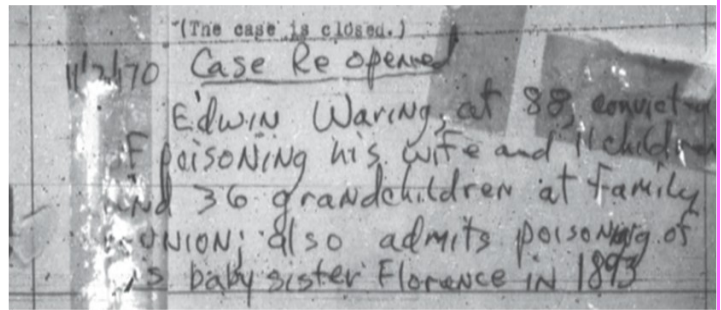 (The case is closed.)
11/2/70 Case Re opened
Edwin Waring, at 88, convicted
F poisoning his wife and 11 children
and 36 grandchildren at family
UNION; also admits poisoning of
is baby sister Florence in 1893